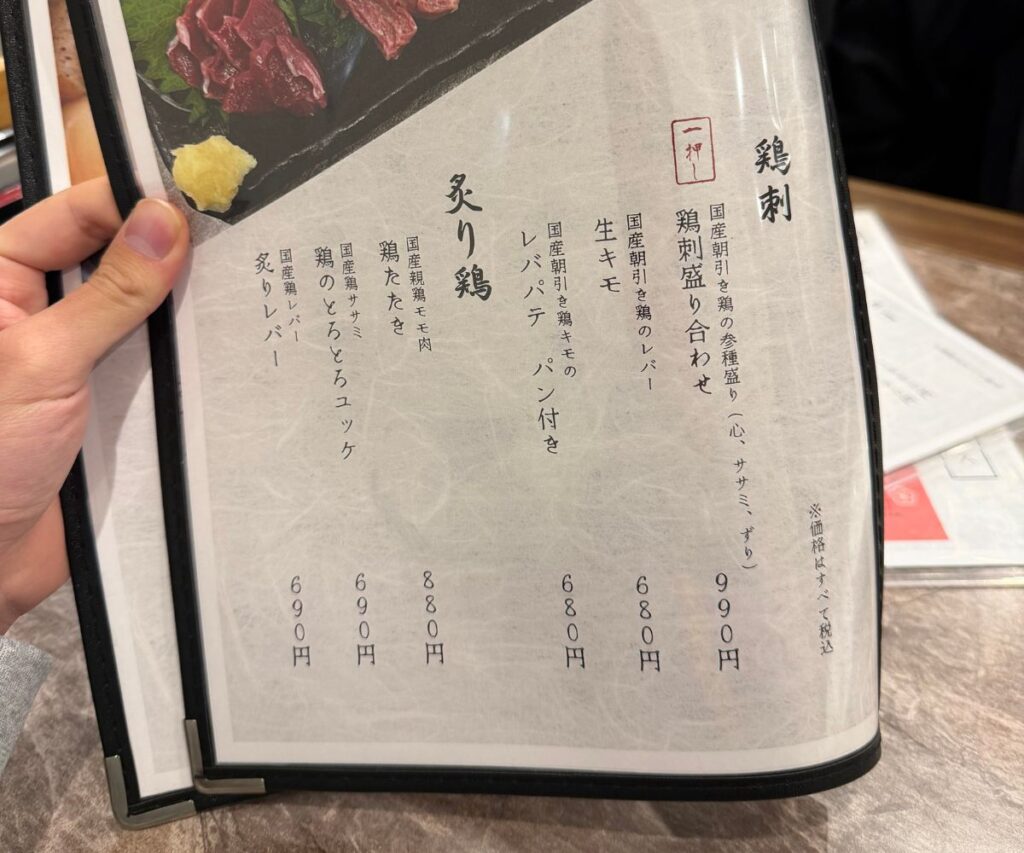 ※価格はすべて税込
鶏刺
一押し
国産朝引き鶏の参種盛り(心、ササミ、ずり)
鶏刺盛り合わせ
990円
国産朝引き鶏のレバー
生キモ
680円
国産朝引き鶏キモの
レバパテ パン付き
680円
炙り鶏
国産親鶏モモ肉
鶏たたき
880円
国産鶏ササミ
鶏のとろとろユッケ
690円
国産鶏レバー
炙りレバー
690円